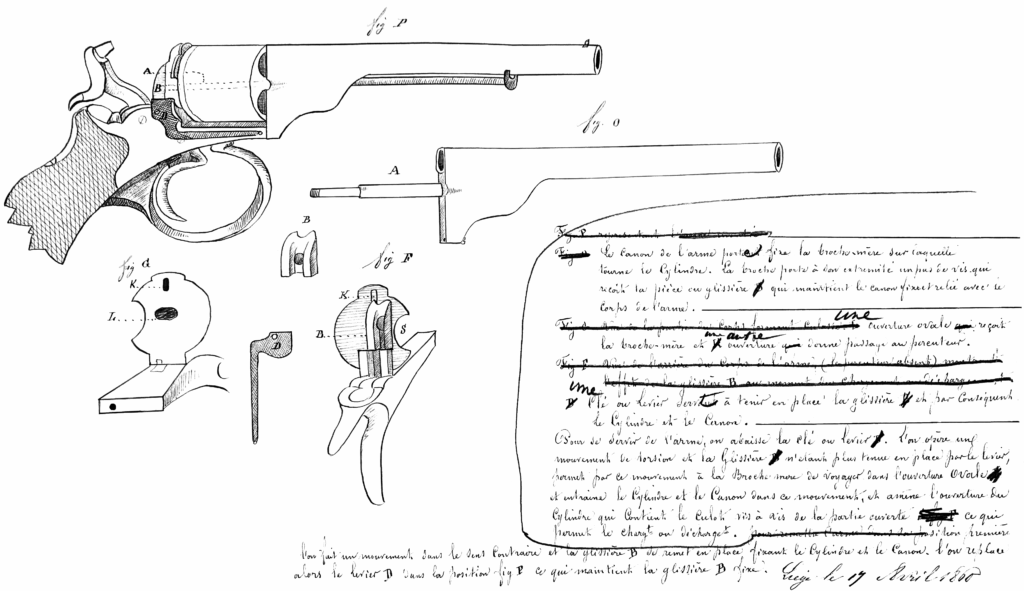 fig P
A.
B
D
fig. O
A
B
fig G
K.
L.
D
fig F
K.
B.
S
Fig P représentant
Fig Le canon de l'arme porte fixe la broche-mère sur laquelle
tourne le Cylindre. La broche porte à son extrémité un pas de vis qui
reçoit la pièce en glissière B qui maintient le canon fixe et relié avec le
corps de l'arme.
une
ouverture ovale qui reçoit
une autre
la broche-mère et ouverture qui donne passage au percuteur.
Fig F Vue de l'arrière du Corps de l'arme, (le percuteur absent) montrant
de la glissière B au moment
une
D Clé ou levier servant à tenir en place la glissière B et par conséquent
le Cylindre et le Canon.
Pour se servir de l'arme, on abaisse la Clé ou levier. L'on opère un
mouvement de torsion et la Glissière B n'étant plus tenue en place par le levier,
permet par ce mouvement à la Broche mère de voyager dans l'ouverture Ovale
et entraine le Cylindre et le Canon dans ce mouvement, et amène l'ouverture du
Cylindre qui Contient le Culot vis à vis de la partie ouverte ce qui
permet le charger ou décharger. position première
l'on fait un mouvement dans le sens Contraire et la glissière B se remet en place, fixant le Cylindre et le Canon. L'on replace
alors le levier D dans la position fig P ce qui maintient la glissière B fixe.
Liège le 17 Avril 1860